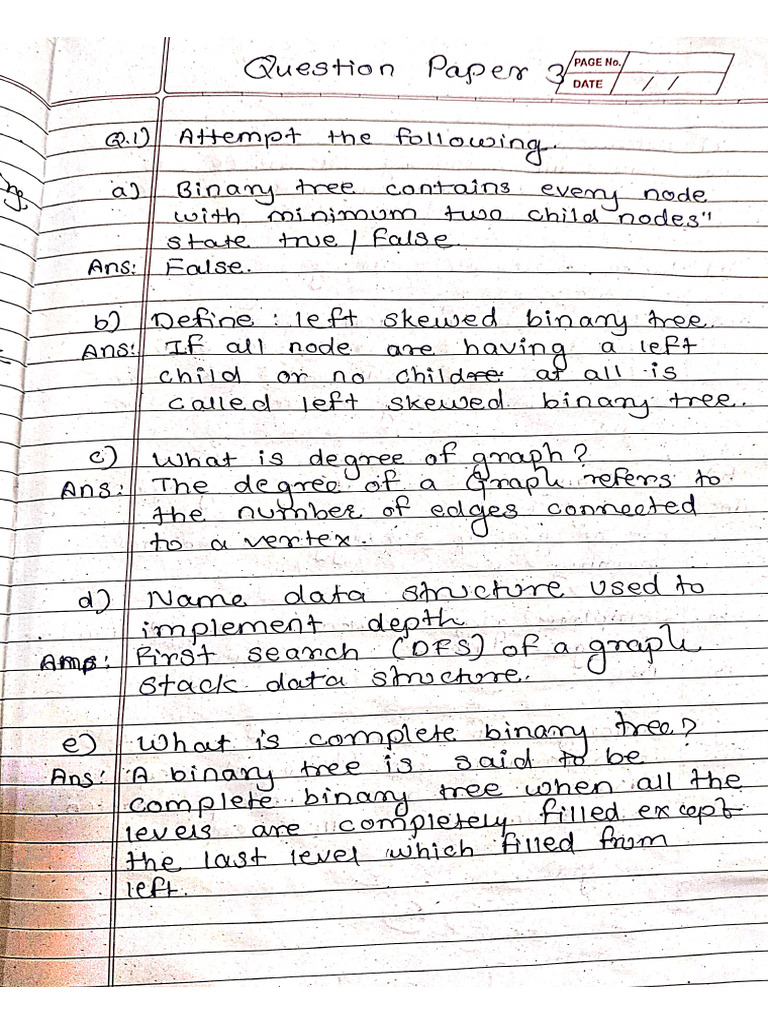 Question Paper 3
PAGE No.
DATE / /
Q.1) Attempt the following.
a) Binary tree contains every node
with minimum two child nodes"
state true / false
Ans: False.
b) Define : left skewed binary tree.
Ans: If all node are having a left
child or no child at all is
called left skewed binary tree.
c) What is degree of graph?
Ans: The degree of a Graph refers to
the number of edges connected
to a vertex.
d) Name data structure used to
implement depth
Ans: First search (DFS) of a graph
stack data structure.
e) What is complete binary tree?
Ans: A binary tree is said to be
complete binary tree when all the
levels are completely filled except
the last level which filled from
left.